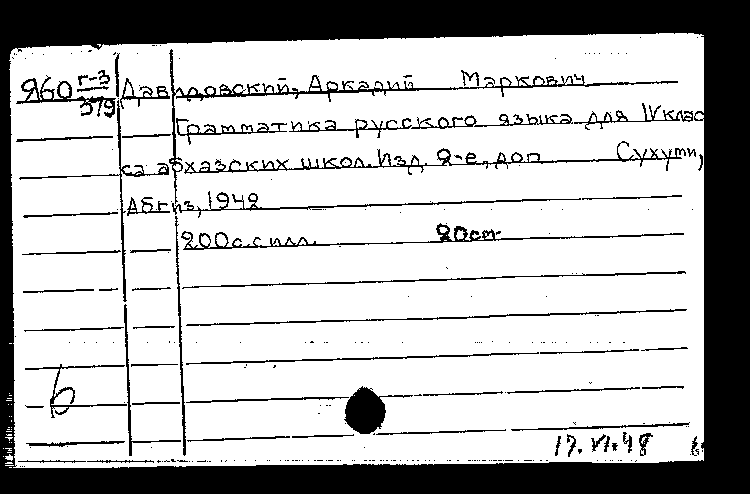 Я60 г-3
379
Давидовский, Аркадий Маркович
Грамматика русского языка для IV клас
са абхазских школ. Изд. 2-е, доп Сухуми,
Абгиз, 1942
200с. с илл. 20см
6
17.VI.48